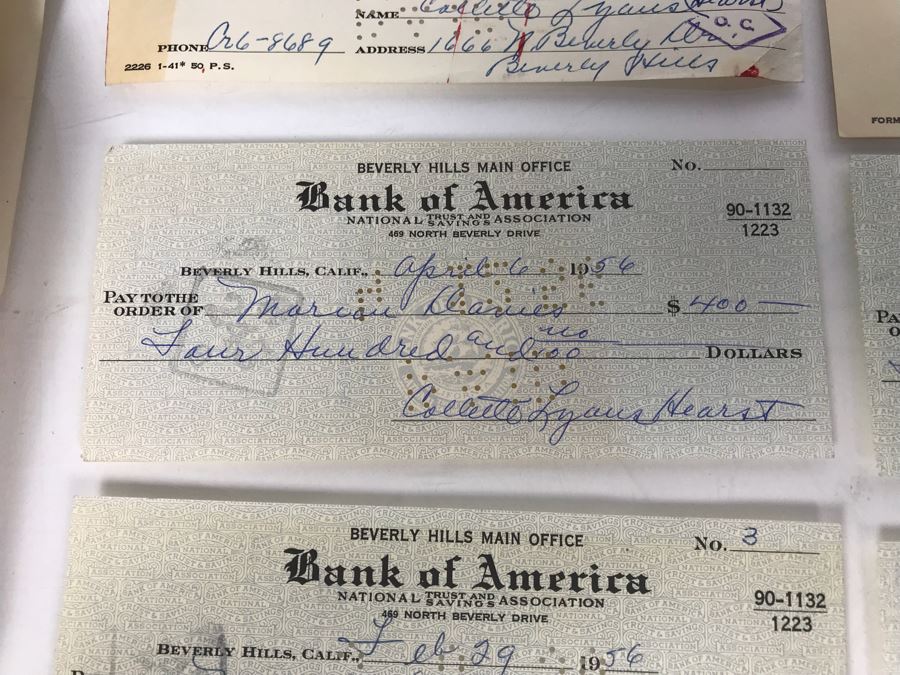 NAME Collette Lyans Hearst
O.C
PHONE Cr6-8689 ADDRESS 1666 N. Beverly Dr.
2226 1-41* 50, P.S.
Beverly Hills
FORM
BEVERLY HILLS MAIN OFFICE
No.
Bank of America
NATIONAL TRUST AND SAVINGS ASSOCIATION
469 NORTH BEVERLY DRIVE
90-1132
1223
BEVERLY HILLS, CALIF., April 6 1956
PAY TO THE ORDER OF Marion Davies $400—
Four Hundred and no/00 DOLLARS
Collette Lyans Hearst
BEVERLY HILLS MAIN OFFICE
No. 3
Bank of America
NATIONAL TRUST AND SAVINGS ASSOCIATION
469 NORTH BEVERLY DRIVE
90-1132
1223
BEVERLY HILLS, CALIF., Feb 29 1956